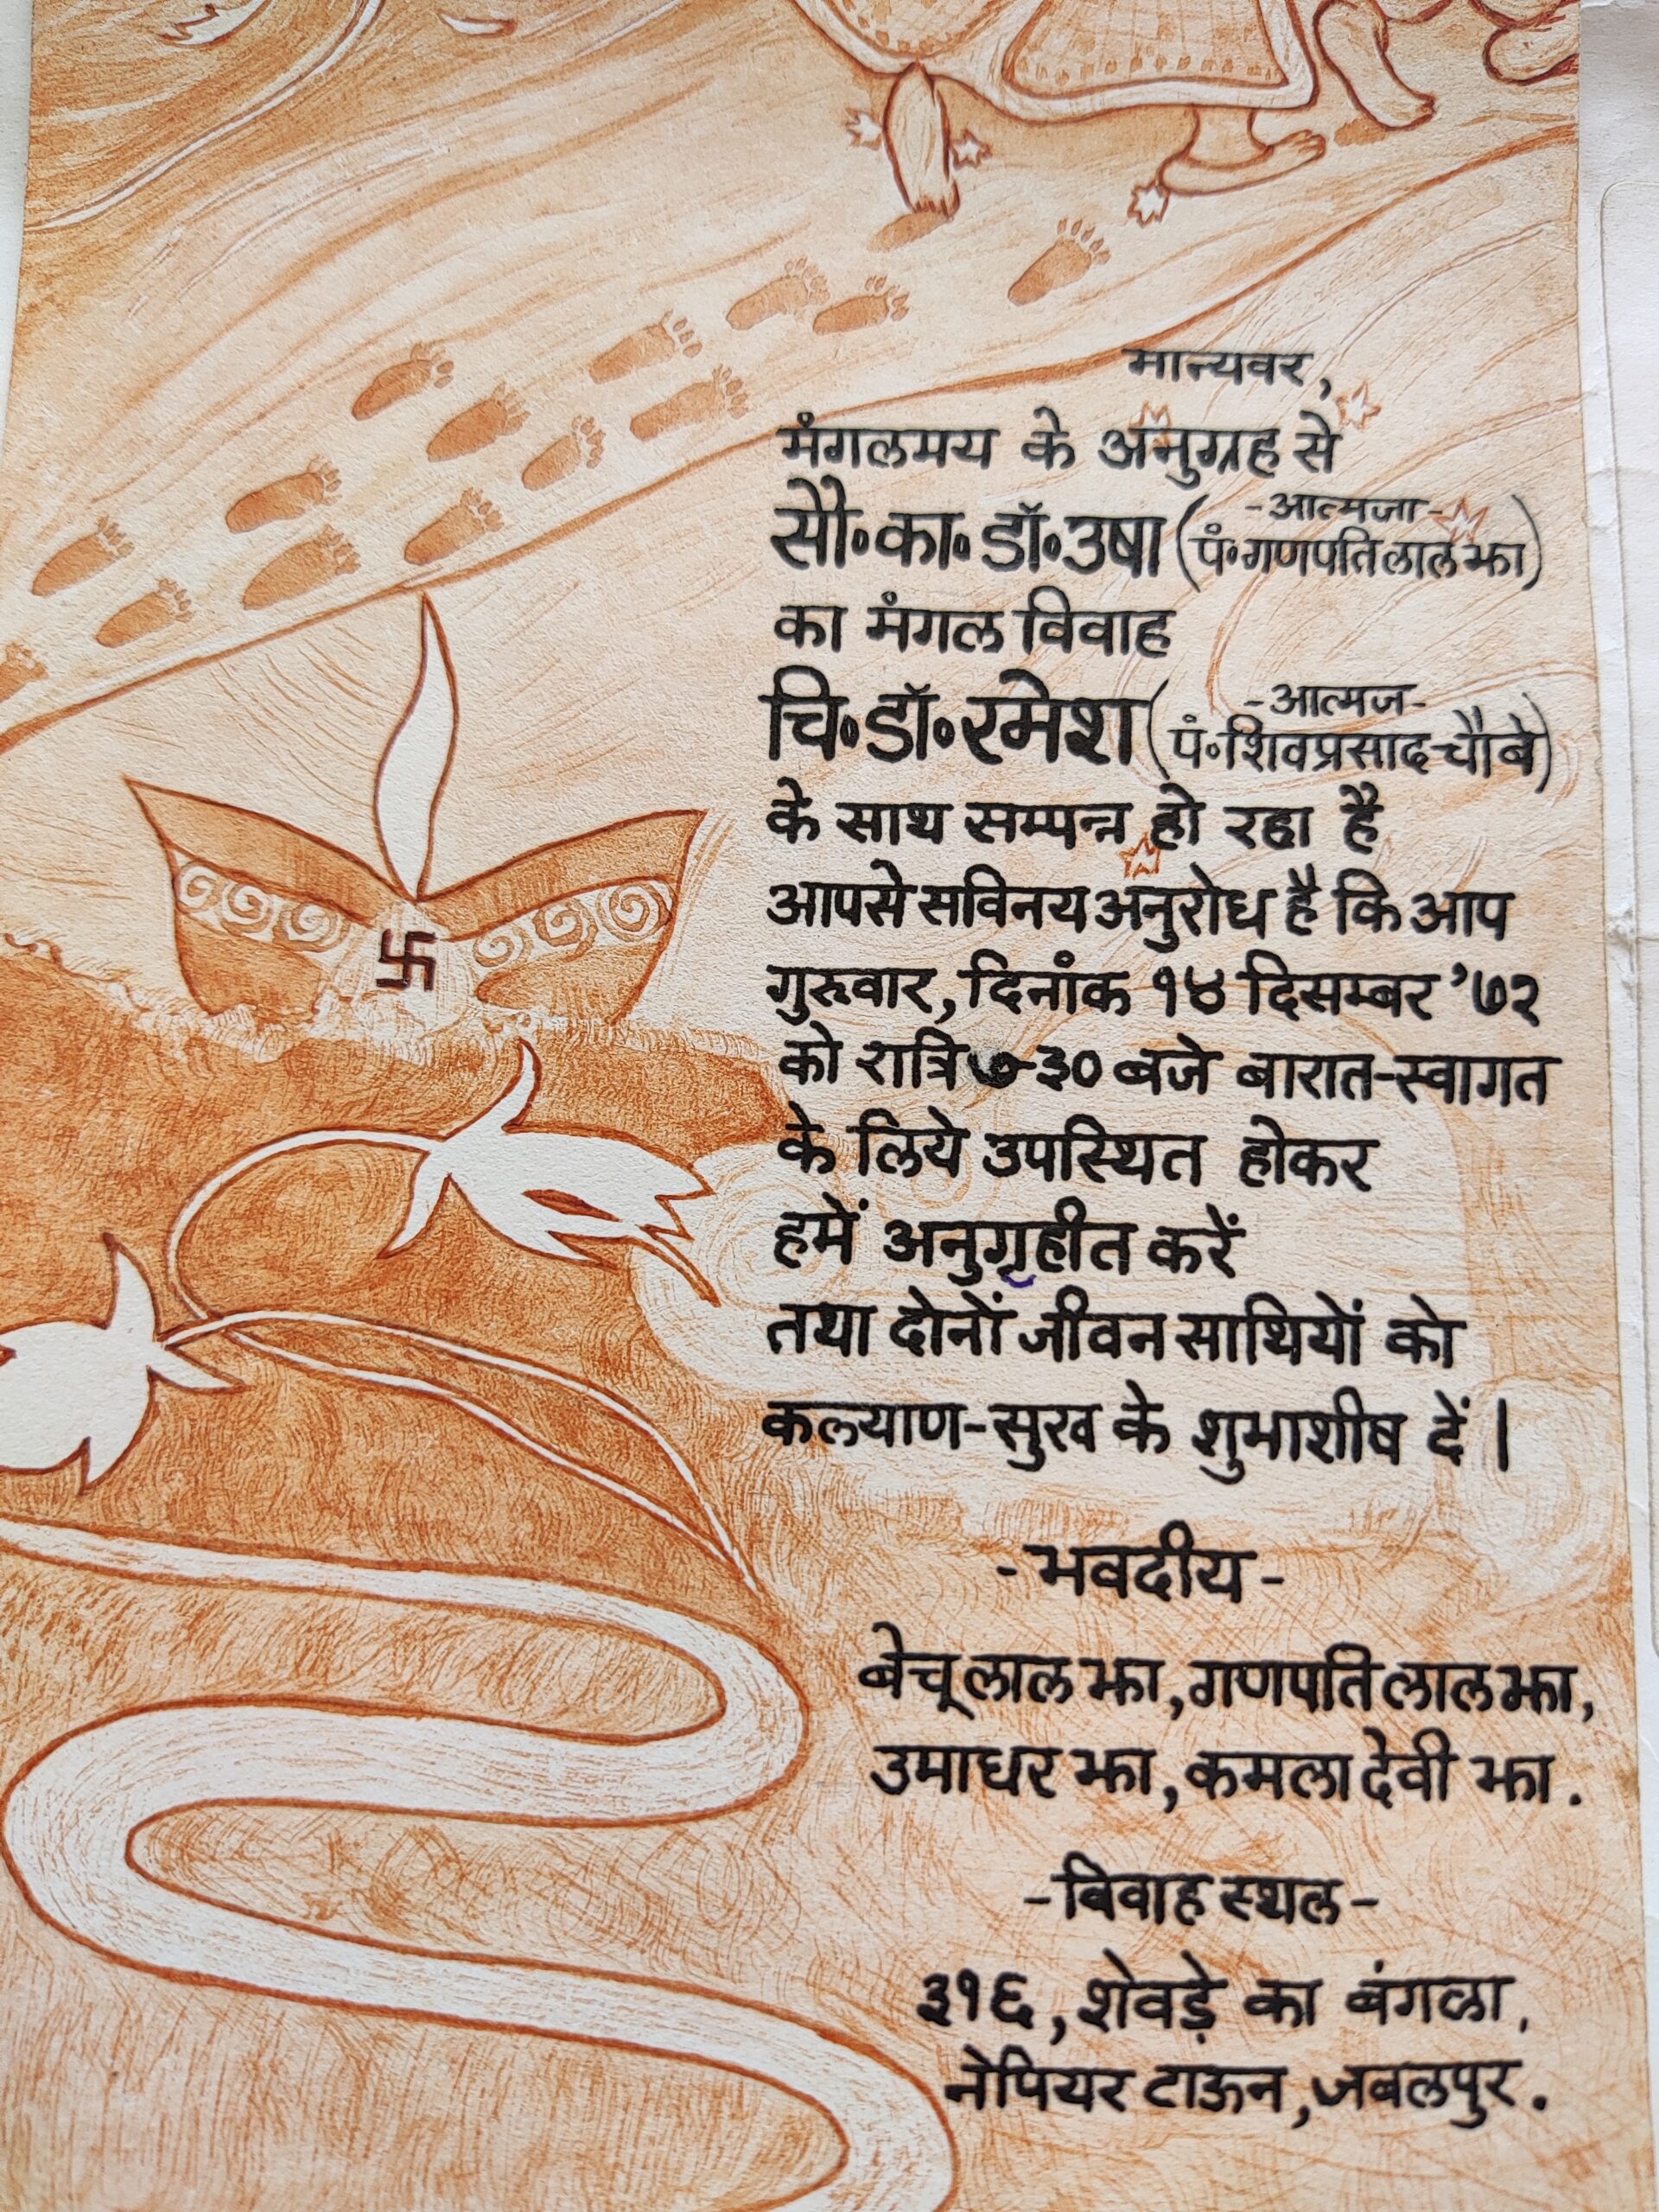 मान्यवर,
मंगलमय के अनुग्रह से
सौ॰का॰डॉ॰उषा (-आत्मजा- पं॰गणपतिलाल झा)
का मंगल विवाह
चि॰डॉ॰रमेश (-आत्मज- पं॰शिवप्रसाद चौबे)
के साथ सम्पन्न हो रहा है
आपसे सविनय अनुरोध है कि आप
गुरुवार, दिनांक १४ दिसम्बर '७२
को रात्रि ७-३० बजे बारात-स्वागत
के लिये उपस्थित होकर
हमें अनुगृहीत करें
तथा दोनों जीवन साथियों को
कल्याण-सुख के शुभाशीष दें।
-भवदीय-
बेचूलाल झा, गणपतिलाल झा,
उमाधर झा, कमला देवी झा.
-विवाह स्थल-
३१६, शेवड़े का बंगला,
नेपियर टाऊन, जबलपुर.